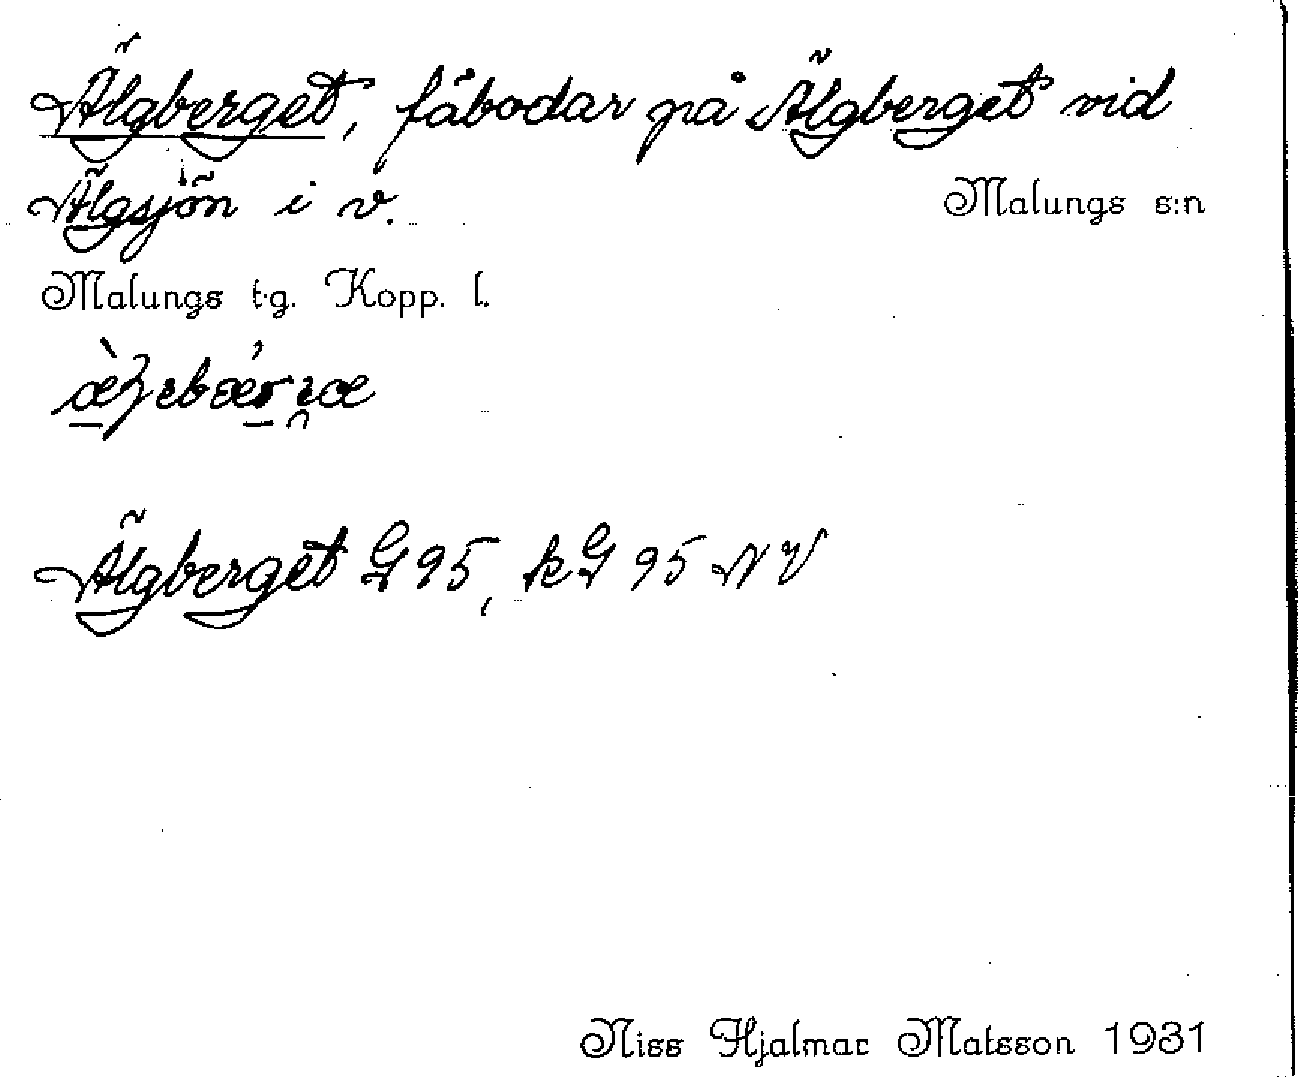 Älgberget, fäbodar på Älgberget vid
Älgsjön i v. Malungs s:n
Malungs t·g. Kopp. l.
Älgberget G 95, k G 95 NV
Niss Hjalmar Matsson 1931